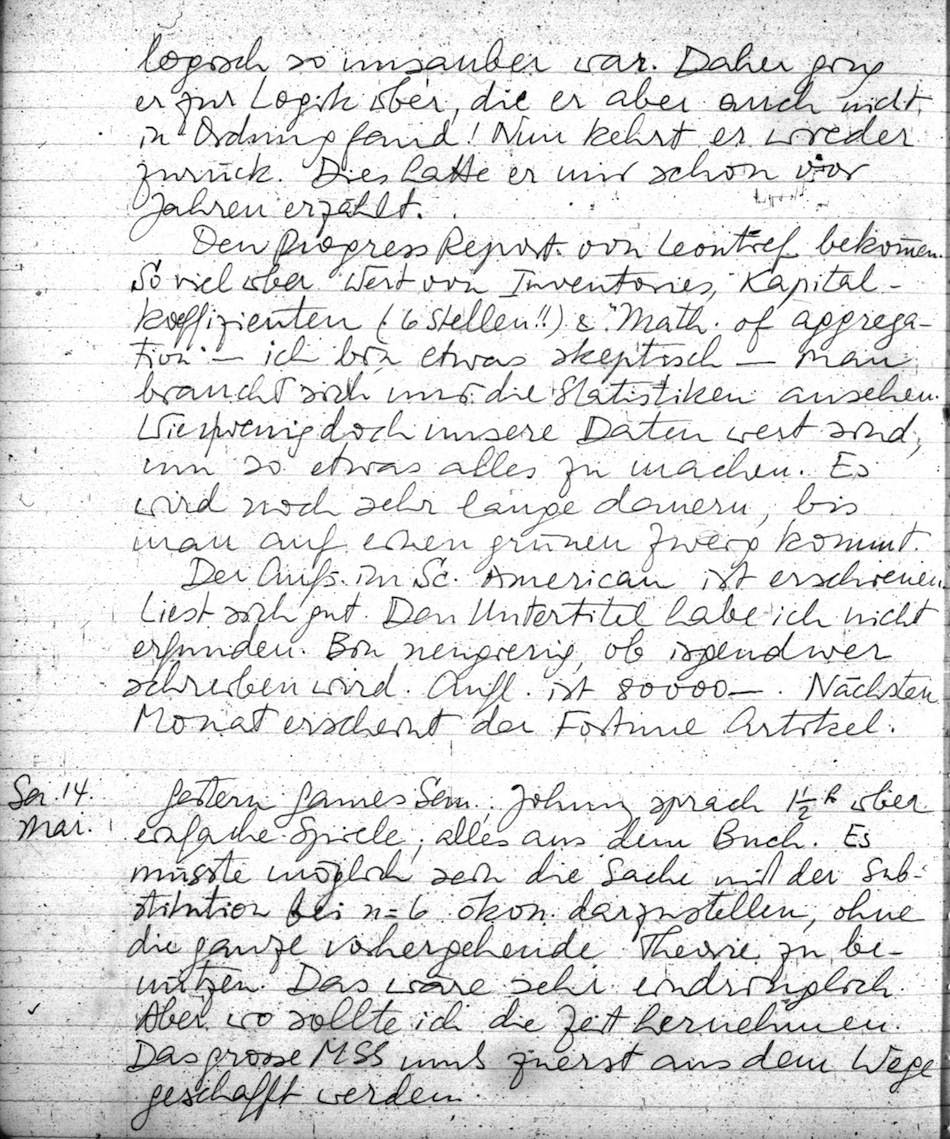 logisch so unsauber war. Daher ging
er zur Logik über, die er aber auch nicht
in Ordnung fand! Nun kehrt er wieder
zurück. Dies hatte er mir schon vor
Jahren erzählt.
Den Progress Report von Leontief bekommen.
So viel über Wert von Inventories, Kapital-
koeffizienten (6 Stellen!!) & "Math. of aggrega-
tion" — ich bin etwas skeptisch — man
braucht sich nur die Statistiken ansehen.
Wie wenig doch unsere Daten wert sind,
um so etwas alles zu machen. Es
wird noch sehr lange dauern, bis
man auf einen grünen Zweig kommt.
Der Aufs. im Sc. American ist erschienen.
Liest sich gut. Den Untertitel habe ich nicht
erfunden. Bin neugierig, ob irgend wer
schreiben wird. Aufl. ist 80000—. Nächsten
Monat erscheint der Fortune Artikel.
Sa. 14. Mar.
Gestern Games Sem. Johnny sprach 1½ h über
einfache Spiele, alles aus dem Buch. Es
müsste möglich sein die Sache mit der Sub-
stitution bei n=6 ökon. darzustellen, ohne
die ganze vorhergehende Theorie zu be-
nützen. Das wäre sehr eindringlich.
Aber wo sollte ich die Zeit hernehmen.
Das grosse MSS muss zuerst aus dem Wege
geschafft werden.